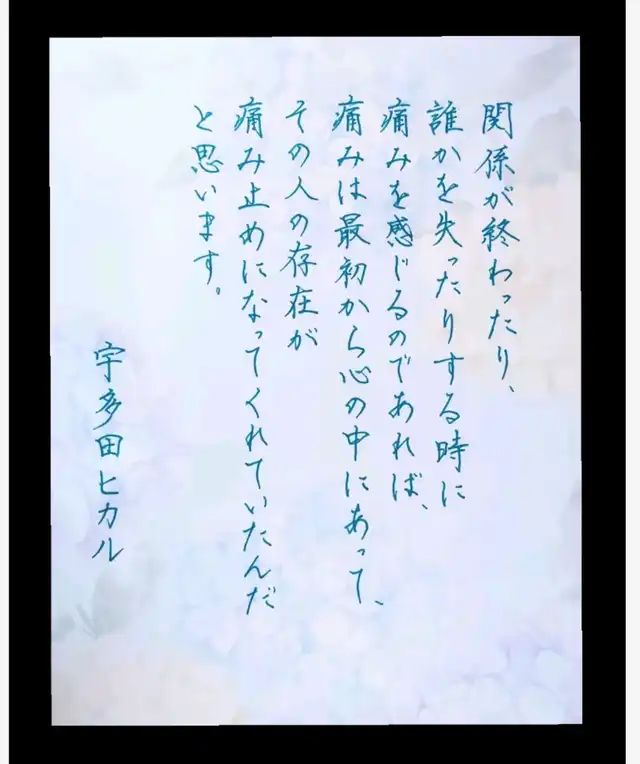 関係が終わったり、
誰かを失ったりする時に
痛みを感じるのであれば、
痛みは最初から心の中にあって、
その人の存在が
痛み止めになってくれていたんだ
と思います。
宇多田ヒカル